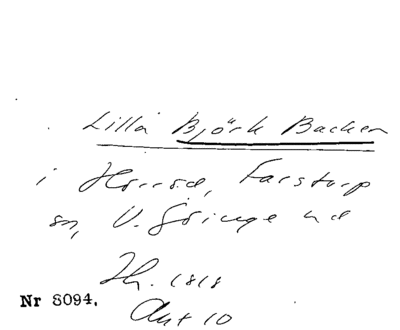 Lilla Björk Backen
i Horröd, Farstorp
sn, V. Göinge hd
Th. 1818
Akt 10
Nr 8094.